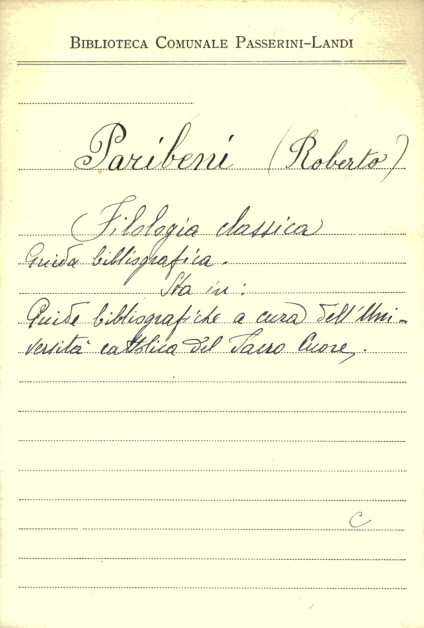 BIBLIOTECA COMUNALE PASSERINI-LANDI
Paribeni (Roberto)
Filologia classica
Guida bibliografica.
Sta in:
Guide bibliografiche a cura dell'Uni-
versità cattolica del Sacro Cuore.
C